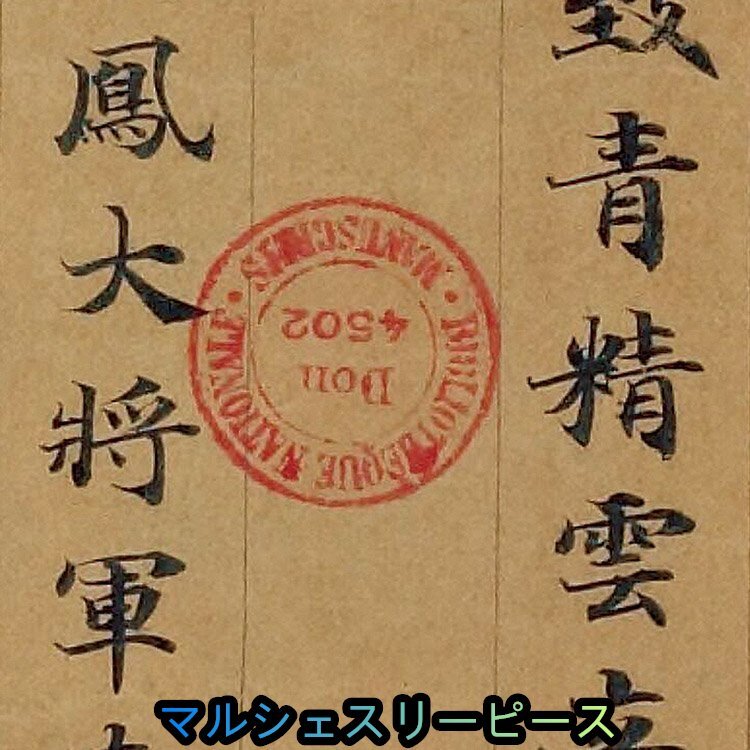 青精雲
BIBLIOTHEQUE NATIONALE
MANUSCRITS
Don
4502
鳳大將軍
マルシェスリーピース